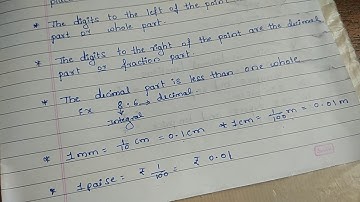 * The digits to the left of the point
part or whole part.
* The digits to the right of the point are the decimal
part or fraction part.
* The decimal part is less than one whole
Ex 8.6 → decimal
↓
integral
* 1mm = 1/10 cm = 0.1cm * 1cm = 1/100 m = 0.01m
* 1paise = ₹ 1/100 = ₹ 0.01